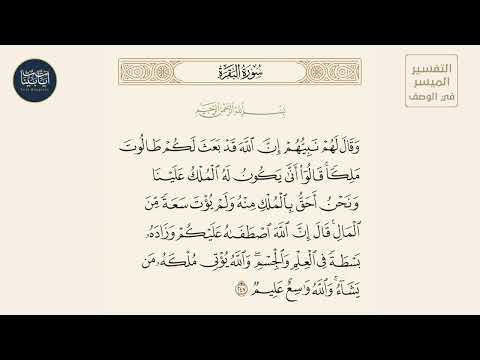 آيَاتٌ بَيِّنَات
التفسير
الميسر
في الوصف
سُورَةُ البَقَرَةِ
بِسْمِ اللَّهِ الرَّحْمَٰنِ الرَّحِيمِ
وَقَالَ لَهُمْ نَبِيُّهُمْ إِنَّ ٱللَّهَ قَدْ بَعَثَ لَكُمْ طَالُوتَ
مَلِكًاۚ قَالُوٓا۟ أَنَّىٰ يَكُونُ لَهُ ٱلْمُلْكُ عَلَيْنَا
وَنَحْنُ أَحَقُّ بِٱلْمُلْكِ مِنْهُ وَلَمْ يُؤْتَ سَعَةً مِّنَ
ٱلْمَالِۚ قَالَ إِنَّ ٱللَّهَ ٱصْطَفَىٰهُ عَلَيْكُمْ وَزَادَهُۥ
بَسْطَةً فِى ٱلْعِلْمِ وَٱلْجِسْمِۖ وَٱللَّهُ يُؤْتِى مُلْكَهُۥ مَن
يَشَآءُۚ وَٱللَّهُ وَٰسِعٌ عَلِيمٌ ٢٤٧